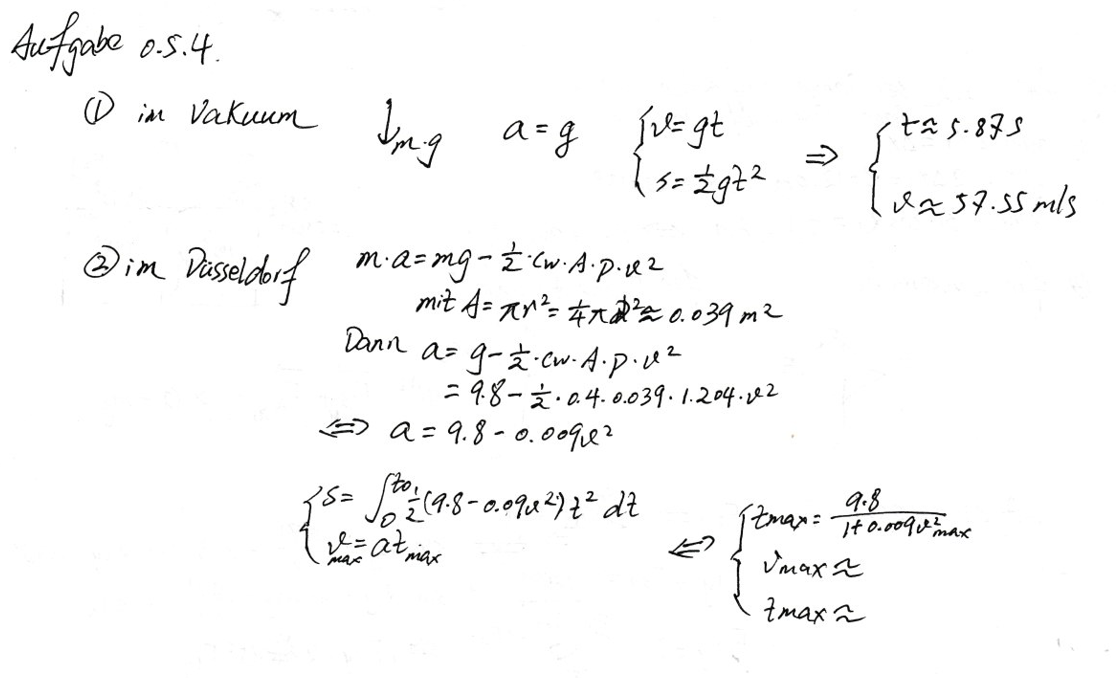 Aufgabe 0.5.4.
① im Vakuum ↓m·g a = g { v = gt s = ½gt² ⇒ { t ≈ 5.87s v ≈ 57.55 m/s
② im Düsseldorf m·a = mg - ½·cw·A·ρ·v²
mit A = πr² = ¼πd² ≈ 0.039 m²
Dann a = g - ½·cw·A·ρ·v²
= 9.8 - ½·0.4·0.039·1.204·v²
⇔ a = 9.8 - 0.009v²
{ s = ∫₀^t₀ ½(9.8 - 0.09v²)t² dt
vmax = atmax
⇔ { tmax = 9.8 / (1+0.009v²max)
vmax ≈
tmax ≈